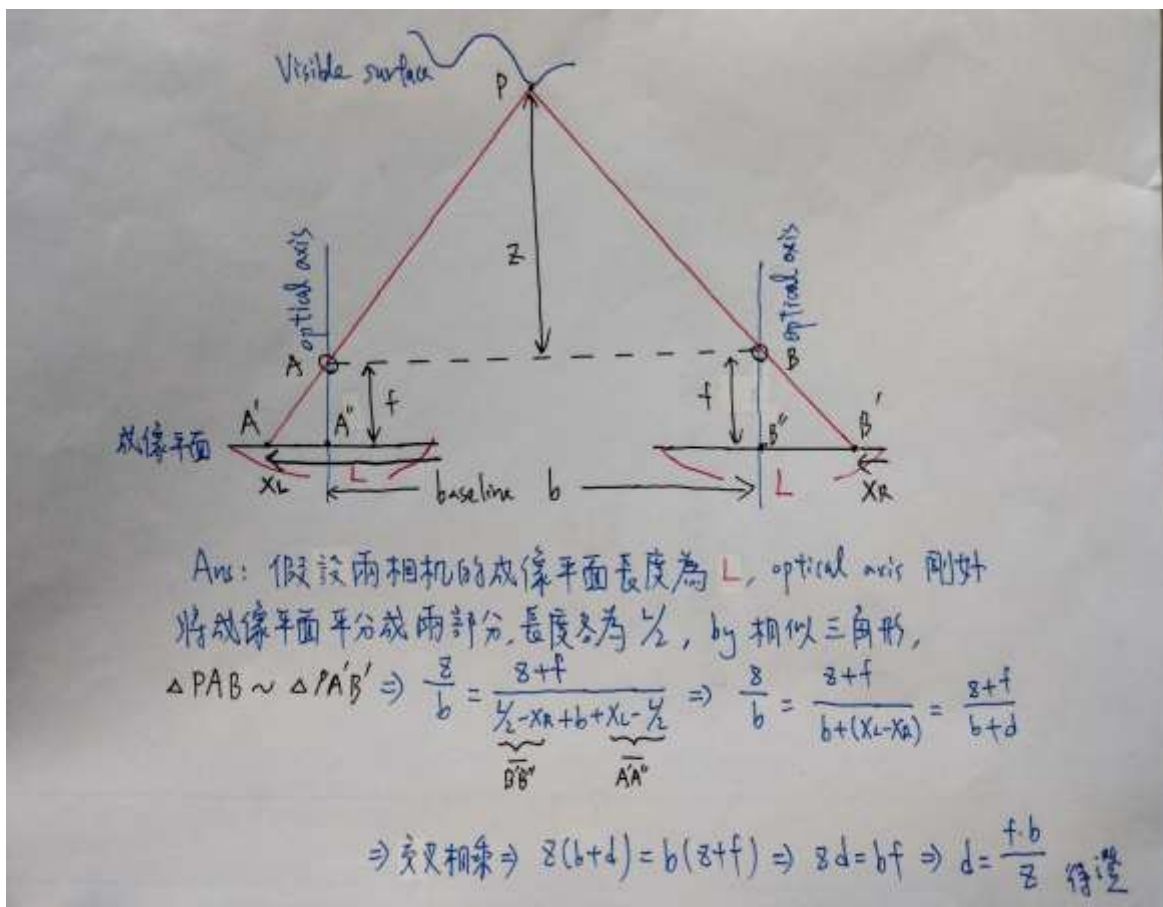 Visible surface
P
optical axis
z
optical axis
A
B
f
f
A'
A"
B"
B'
成像平面
XL
L
baseline b
L
XR
Ans: 假設兩相机的成像平面長度為 L, optical axis 剛好
將成像平面平分成兩部分, 長度各為 L/2, by 相似三角形,
△PAB ~ △PA'B' ⇒ z/b = (z+f)/(L/2-XR+b+XL-L/2) ⇒ z/b = (z+f)/(b+(XL-XR)) = (z+f)/(b+d)
B'B" A'A"
⇒ 交叉相乘 ⇒ z(b+d) = b(z+f) ⇒ zd = bf ⇒ d = f·b/z 得證